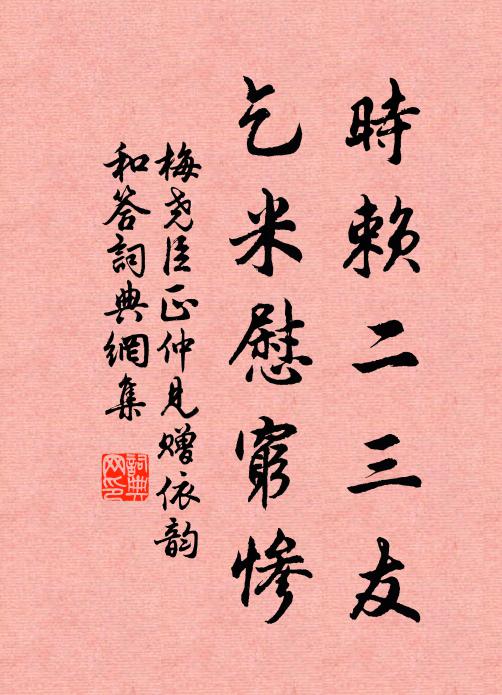 時賴二三友
乞米慰窮慘
梅堯臣正仲見贈依韵
和答詞典網集
詞典網印